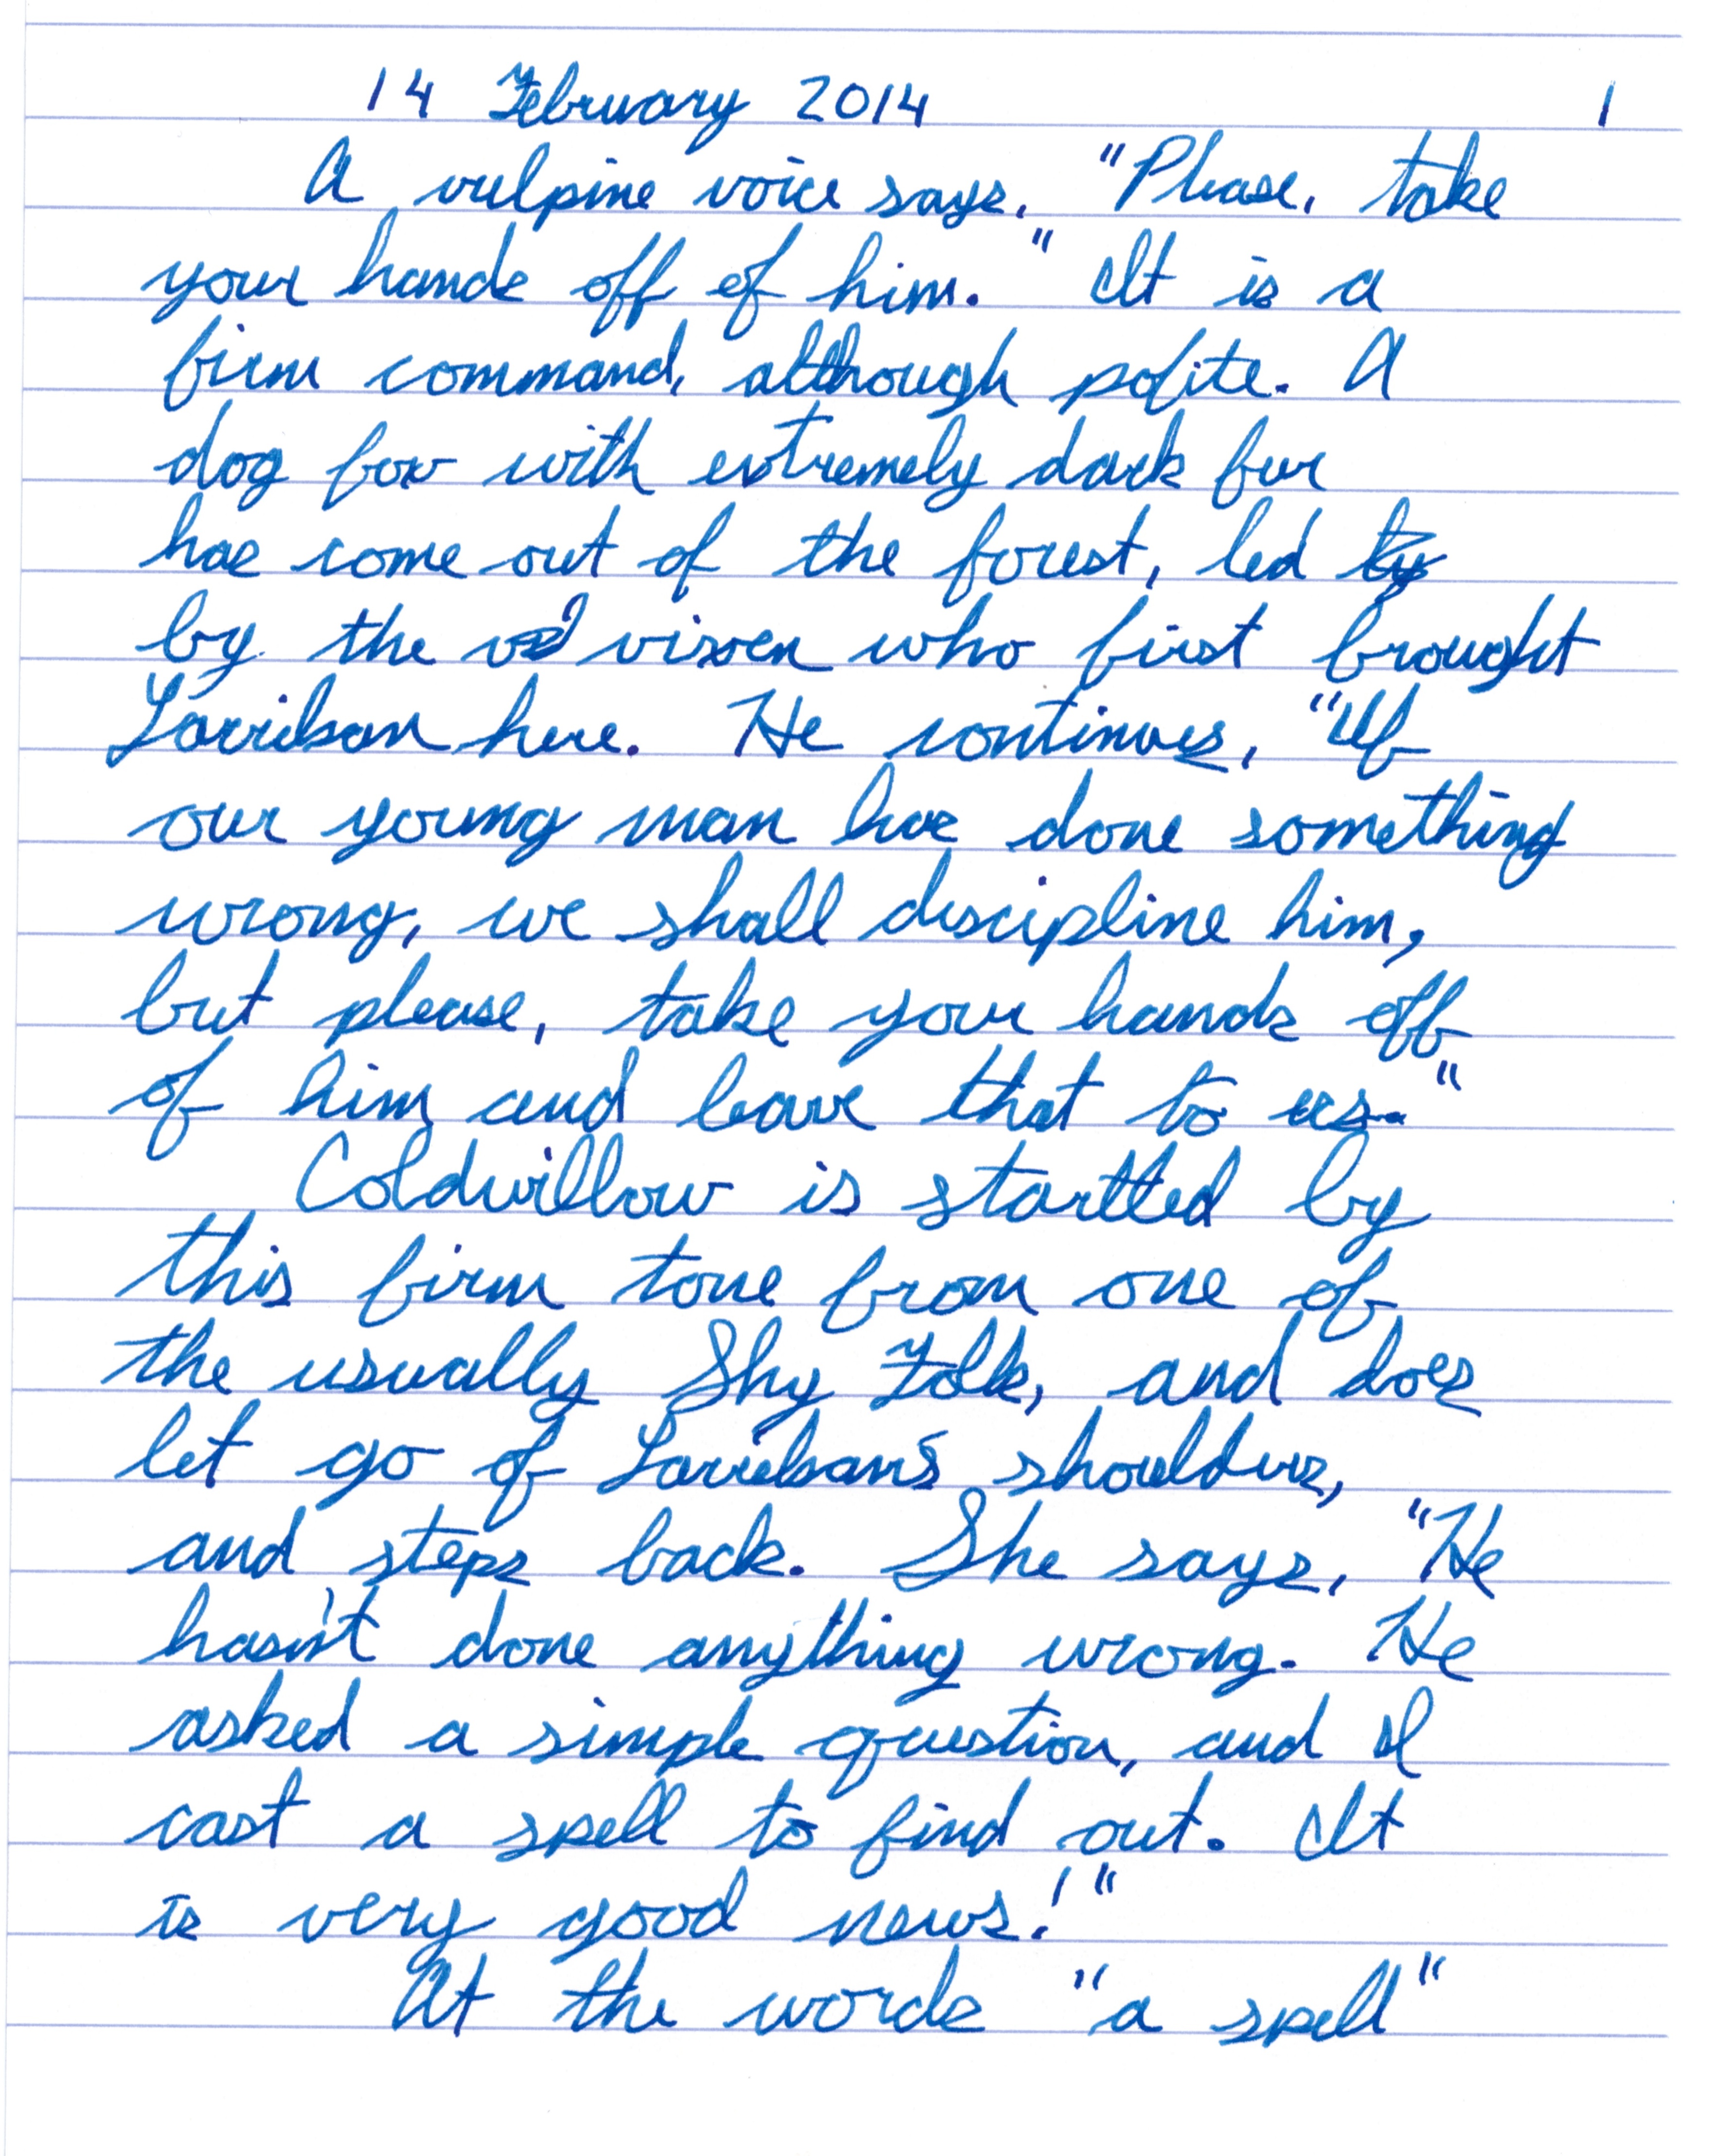 14 February 2014 1
A vulpine voice says, "Please, take
your hands off of him." It is a
firm command, although polite. A
dog fox with extremely dark fur
has come out of the forest, led by
by the vixen who first brought
here. He continues, "If
our young man has done something
wrong, we shall discipline him,
but please, take your hands off
of him and leave that to us."
Coldwillow is startled by
this firm tone from one of
the usually Shy Folk, and does
let go of shoulders,
and steps back. She says, "He
hasn't done anything wrong. He
asked a simple question, and I
cast a spell to find out. It
is very good news!"
At the words "a spell"